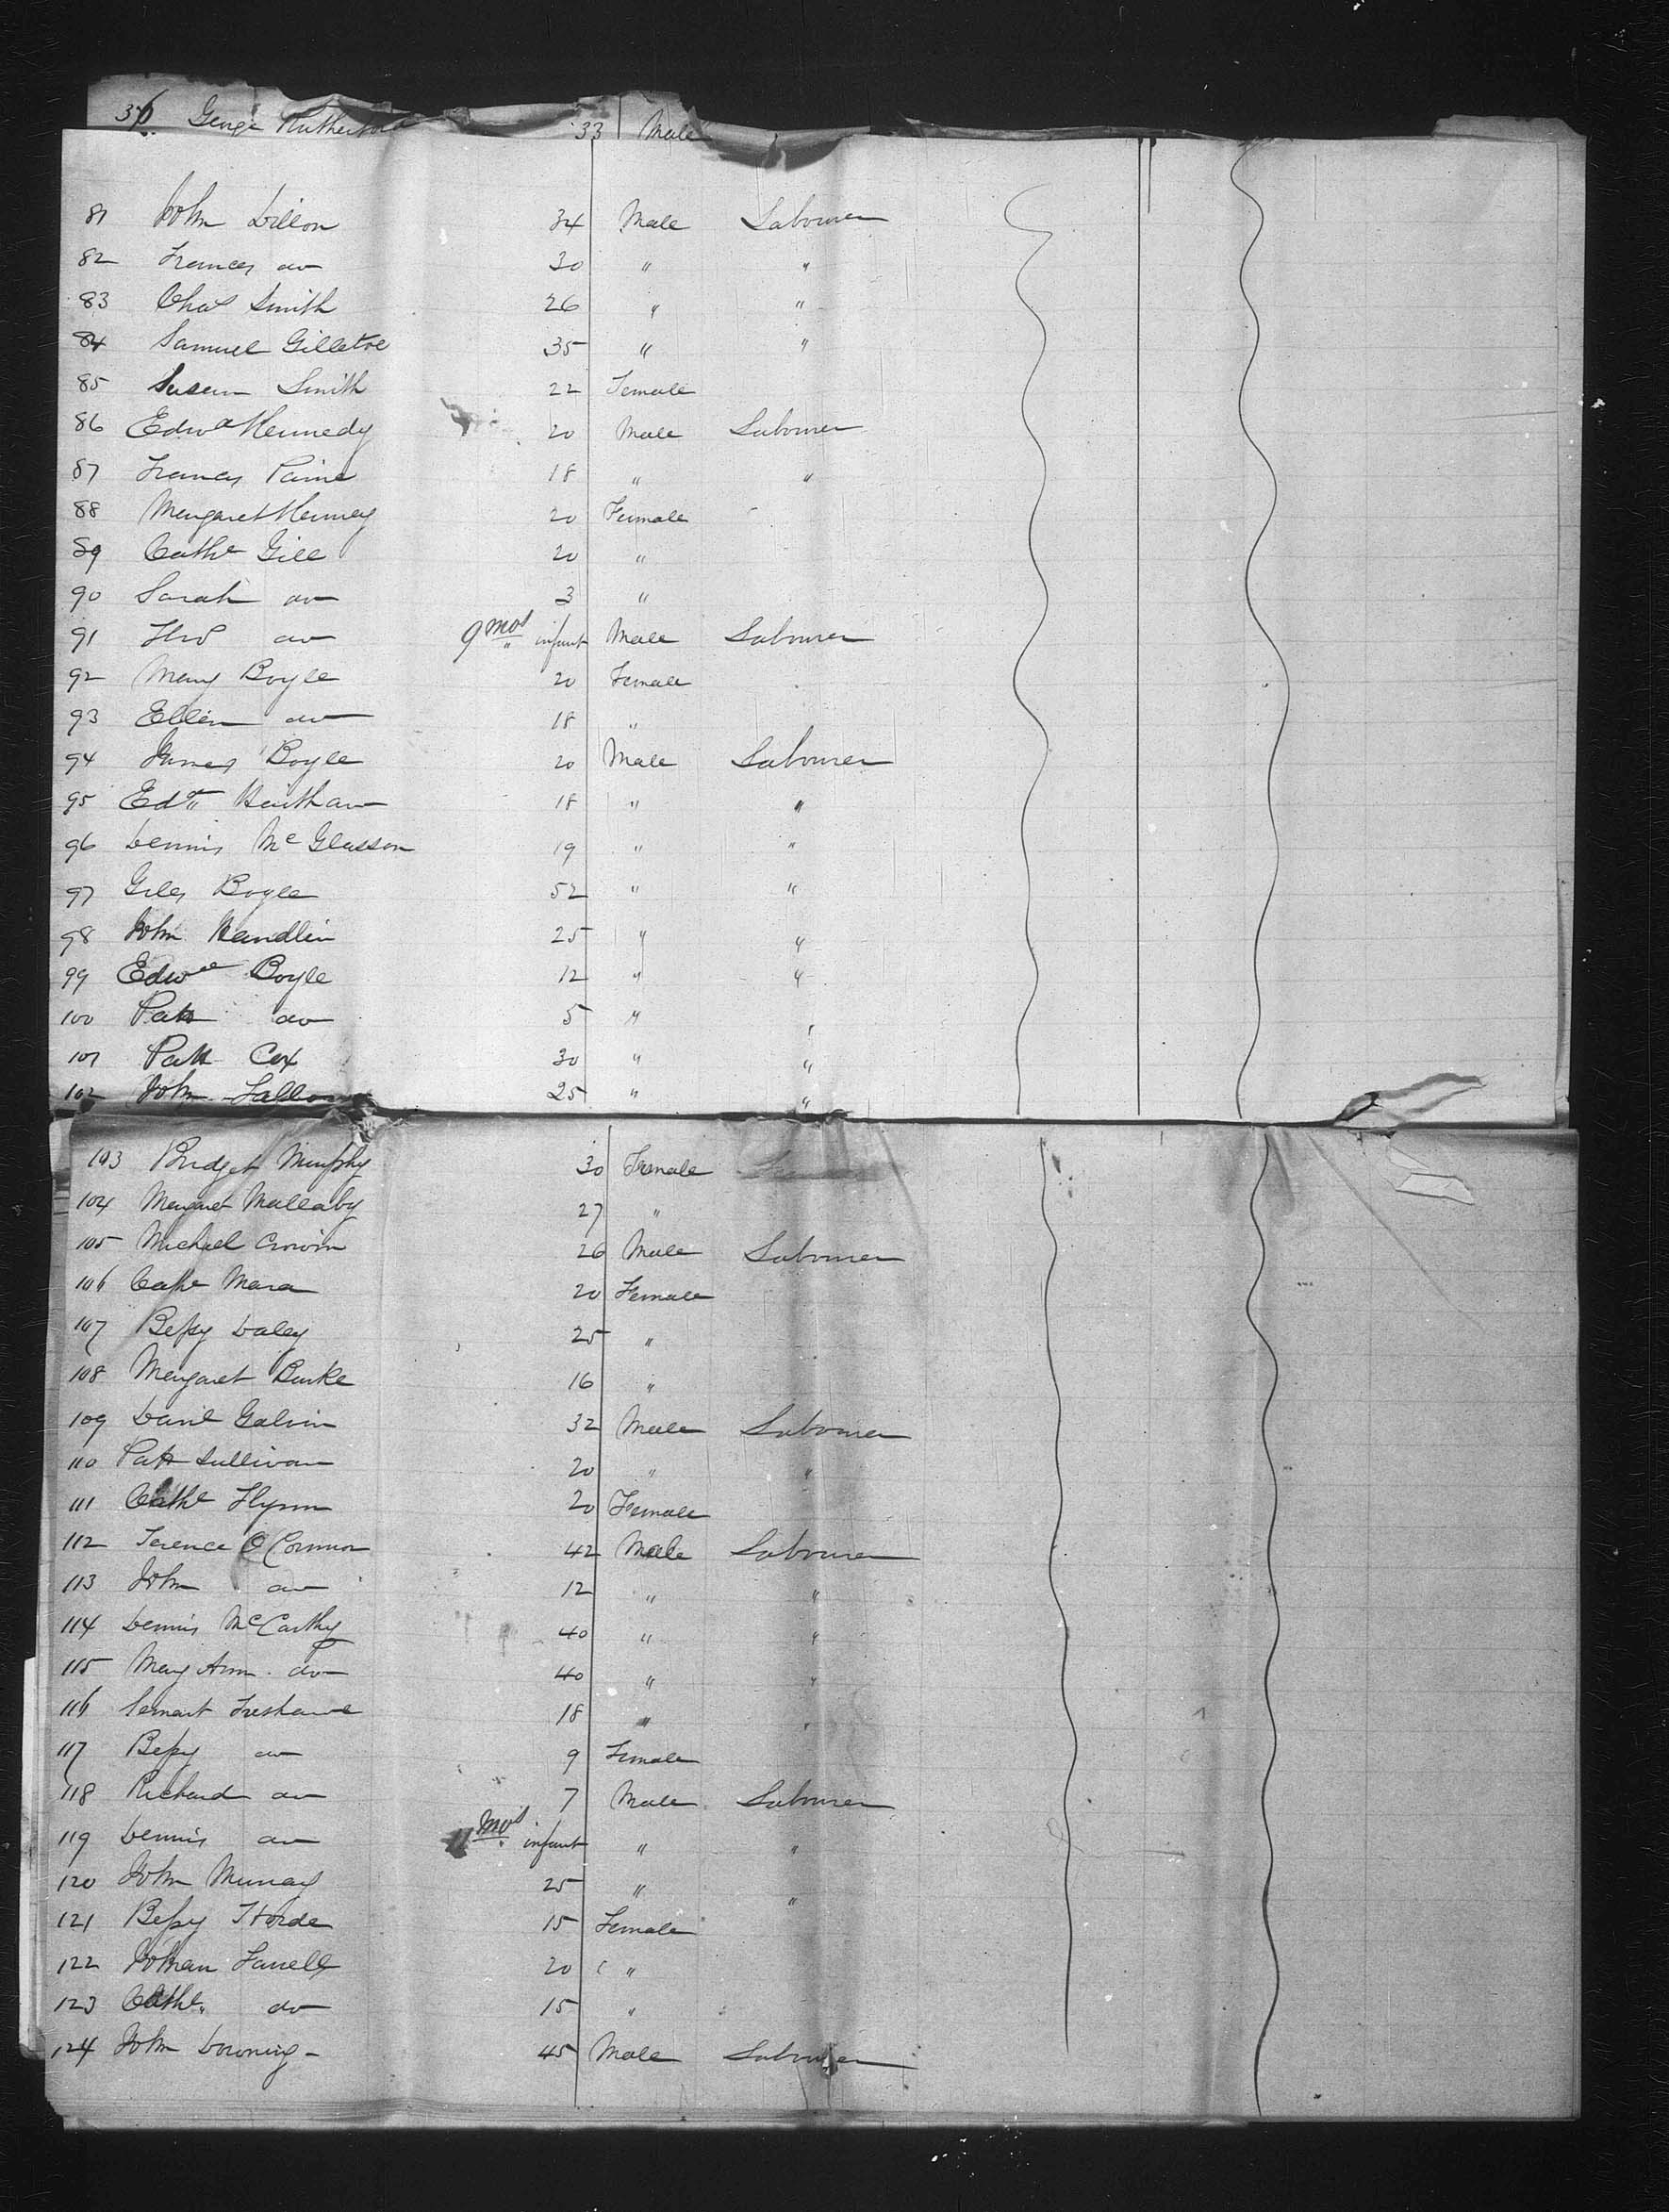 36 George Rutherford 33 Male
81 John Dillon 34 Male Labourer
82 Frances do 30 " "
83 Chas Smith 26 " "
84 Samuel Gilletoe 35 " "
85 Susan Smith 22 Female
86 Edwd Kennedy 20 Male Labourer
87 Frances Paine 18 " "
88 Margaret Kenney 20 Female
89 Cathe Gill 20 "
90 Sarah do 3 "
91 Thos do 9 mos infant Male Labourer
92 Mary Boyle 20 Female
93 Ellen do 18 "
94 James Boyle 20 Male Labourer
95 Edd 18 " "
96 Dennis Mc Glasson 19 " "
97 Giles Boyle 52 " "
98 John Handlin 25 " "
99 Edwd Boyle 12 " "
100 Patk do 5 " "
101 Patk Cox 30 " "
102 John 25 " "
103 Bridget Murphy 30 Female
104 Margaret Mallaby 27 "
105 Michael Crowin 26 Male Labourer
106 Cathe Mara 20 Female
107 Bessy Daley 25 "
108 Margaret Burke 16 "
109 Danl Galvin 32 Male Labourer
110 Patk Sullivan 20 " "
111 Cathe Flynn 20 Female
112 Terence O Connor 42 Male Labourer
113 John do 12 " "
114 Dennis McCarthy 40 " "
115 Mary Ann do 40 " "
116 18 " "
117 Bessy do 9 Female
118 Richard do 7 Male Labourer
119 Dennis do 11 mos infant " "
120 John Murray 25 " "
121 Bessy 15 Female
122 Farrell 20 "
123 Cathe do 15 "
124 John Downing - 45 Male Labourer